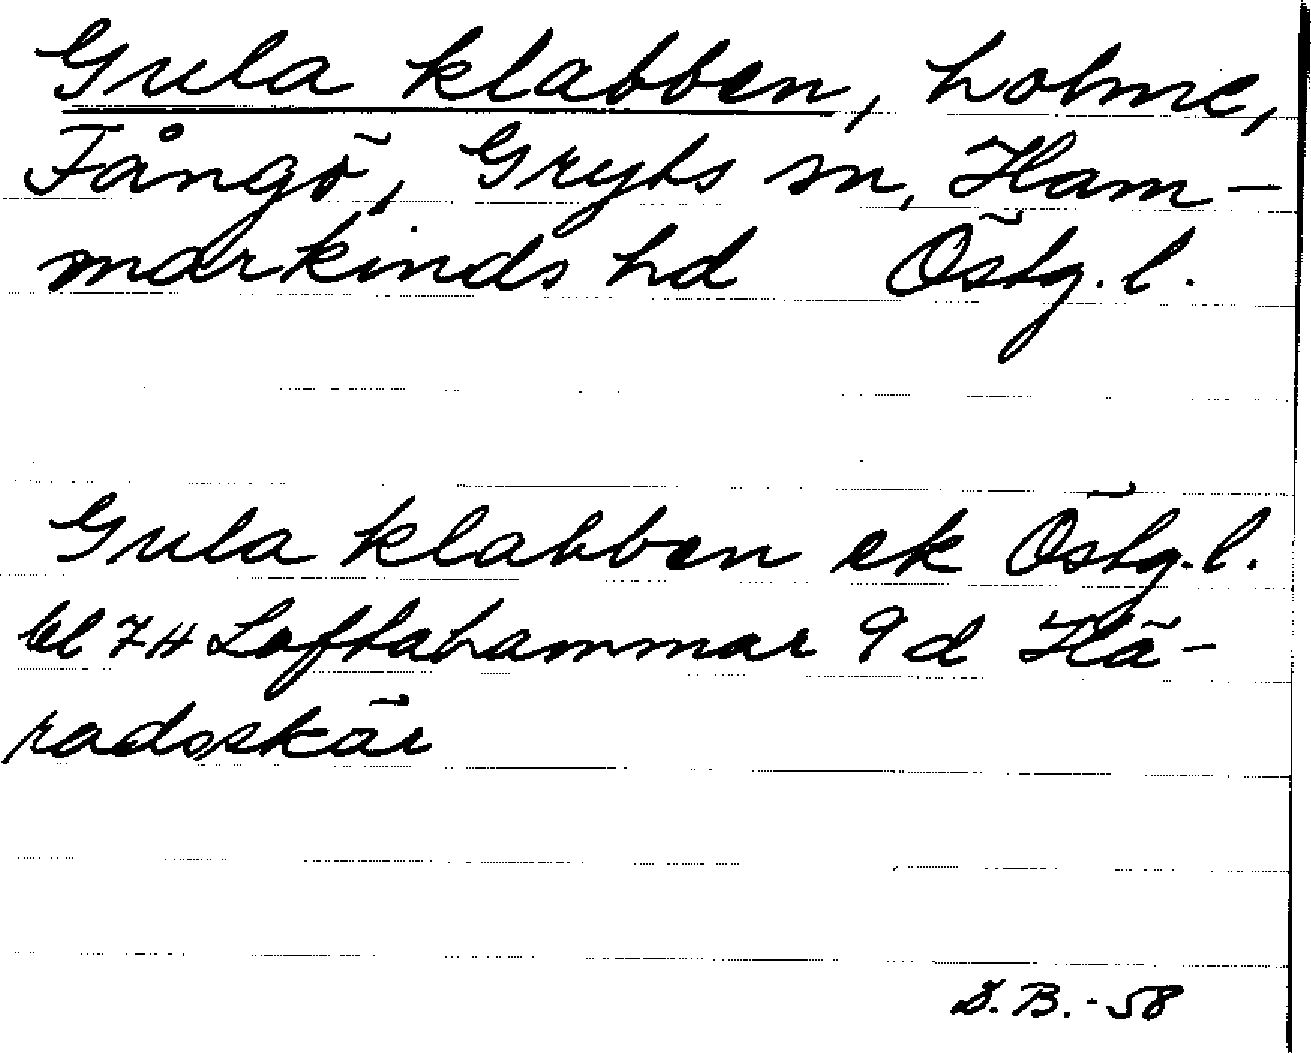 Gula klabben, holme,
Fångö, Gryts sn, Ham-
markinds hd Östg. l.
Gula klabben ek Östg. l.
bl 7H Loftahammar 9d Hä-
radsskär
D.B.-58